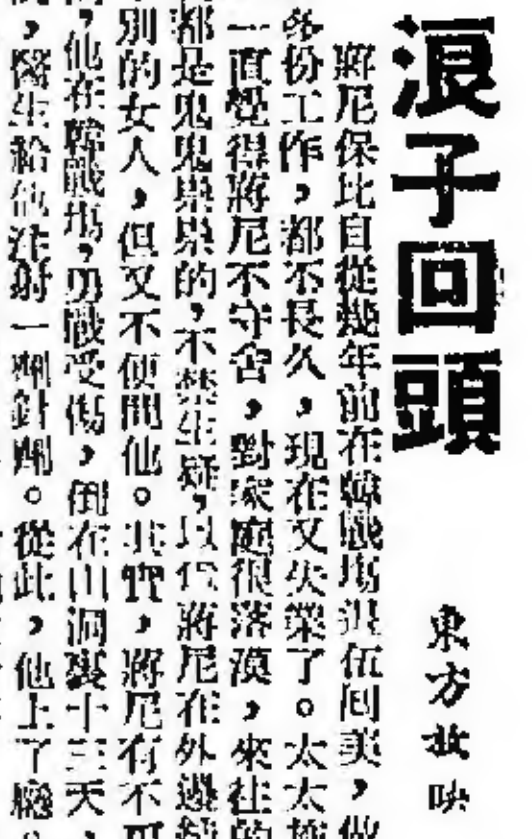 浪子回頭
東方放映
蔣尼保比自從幾年前在韓戰場退伍回美，做
份工作，都不長久，現在又失業了。太太
一直覺得蔣尼不守舍，對家庭很落漠，來往的
都是鬼鬼祟祟的，不禁生疑，以為蔣尼在外邊
別的女人，但又不便問他。其實，蔣尼有不可
，他在韓戰場，勇戰受傷，倒在山洞裏十三天，
，醫生給他注射一劑針劑。從此，他上了癮。